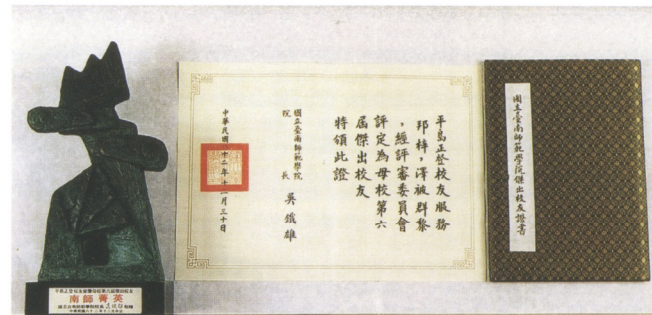 平島正登校友服務
邦梓，澤被群黎
，經評審委員會
評定為母校第六
屆傑出校友
特頒此證
國立臺南師範學院
院長 吳鐵雄
中華民國
十二年十
月三十日
國立臺南師範學院傑出校友證書
南師菁英